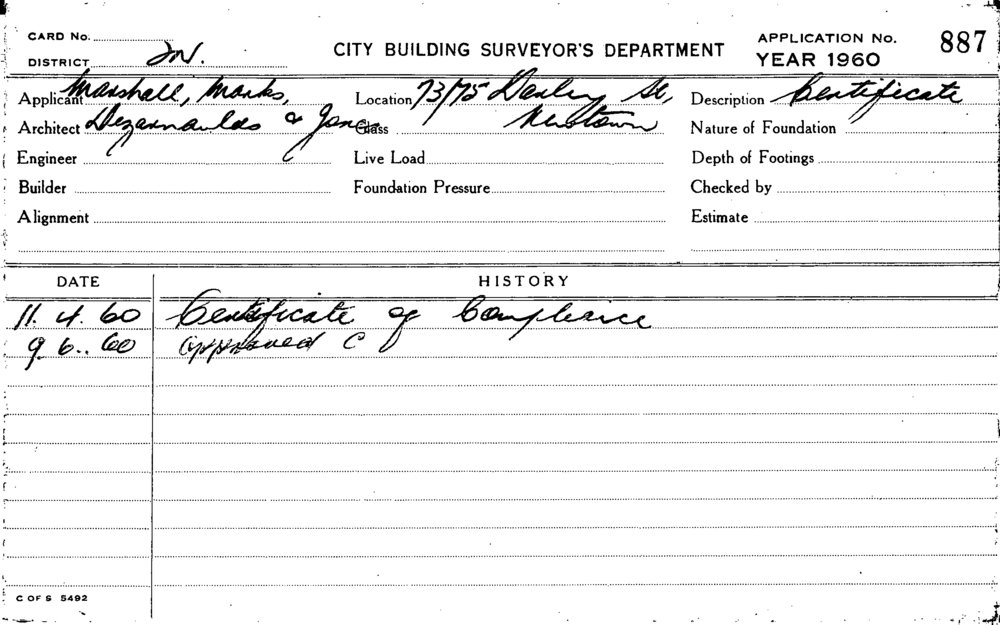 CARD No.
DISTRICT N.
CITY BUILDING SURVEYOR'S DEPARTMENT
APPLICATION No. 887
YEAR 1960
Applicant Marshall, Marks,
Location 73/75 Darley St,
Description Certificate
Architect Dezarnaulds & Jones
Class Newtown
Nature of Foundation
Engineer
Live Load
Depth of Footings
Builder
Foundation Pressure
Checked by
Alignment
Estimate
DATE HISTORY
11. 4. 60 Certificate of Compliance
9. 6.. 60 Approved C
C OF S 5492